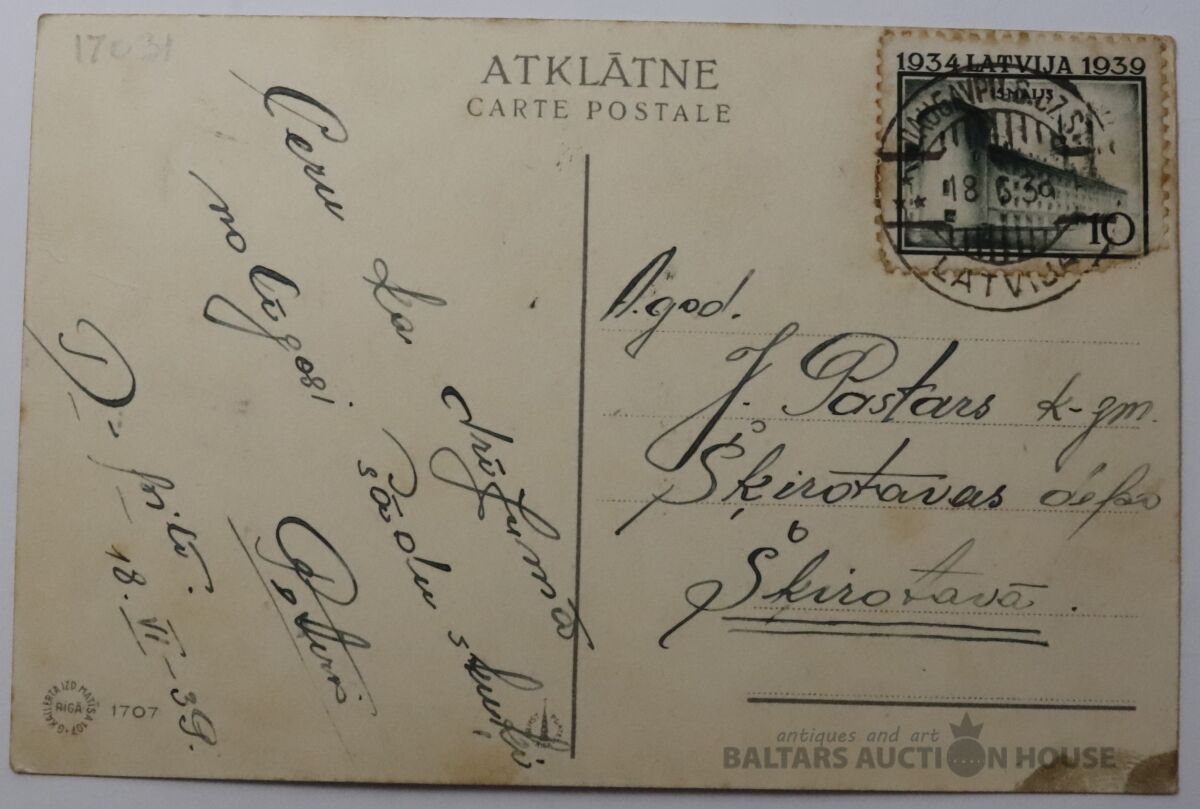 17031
ATKLĀTNE
CARTE POSTALE
1934 LATVIJA 1939
10
DAUGAVPILS
18 6 39
LATVIJA
Ceru ka drīzumā
no tūgosi sādu
D-pilī.
18. VI - 39.
A.god.
J. Pastars k-gm.
Šķirotavas depo
Šķirotavā.
RĪGĀ
1707
antiques and art
BALTARS AUCTION HOUSE